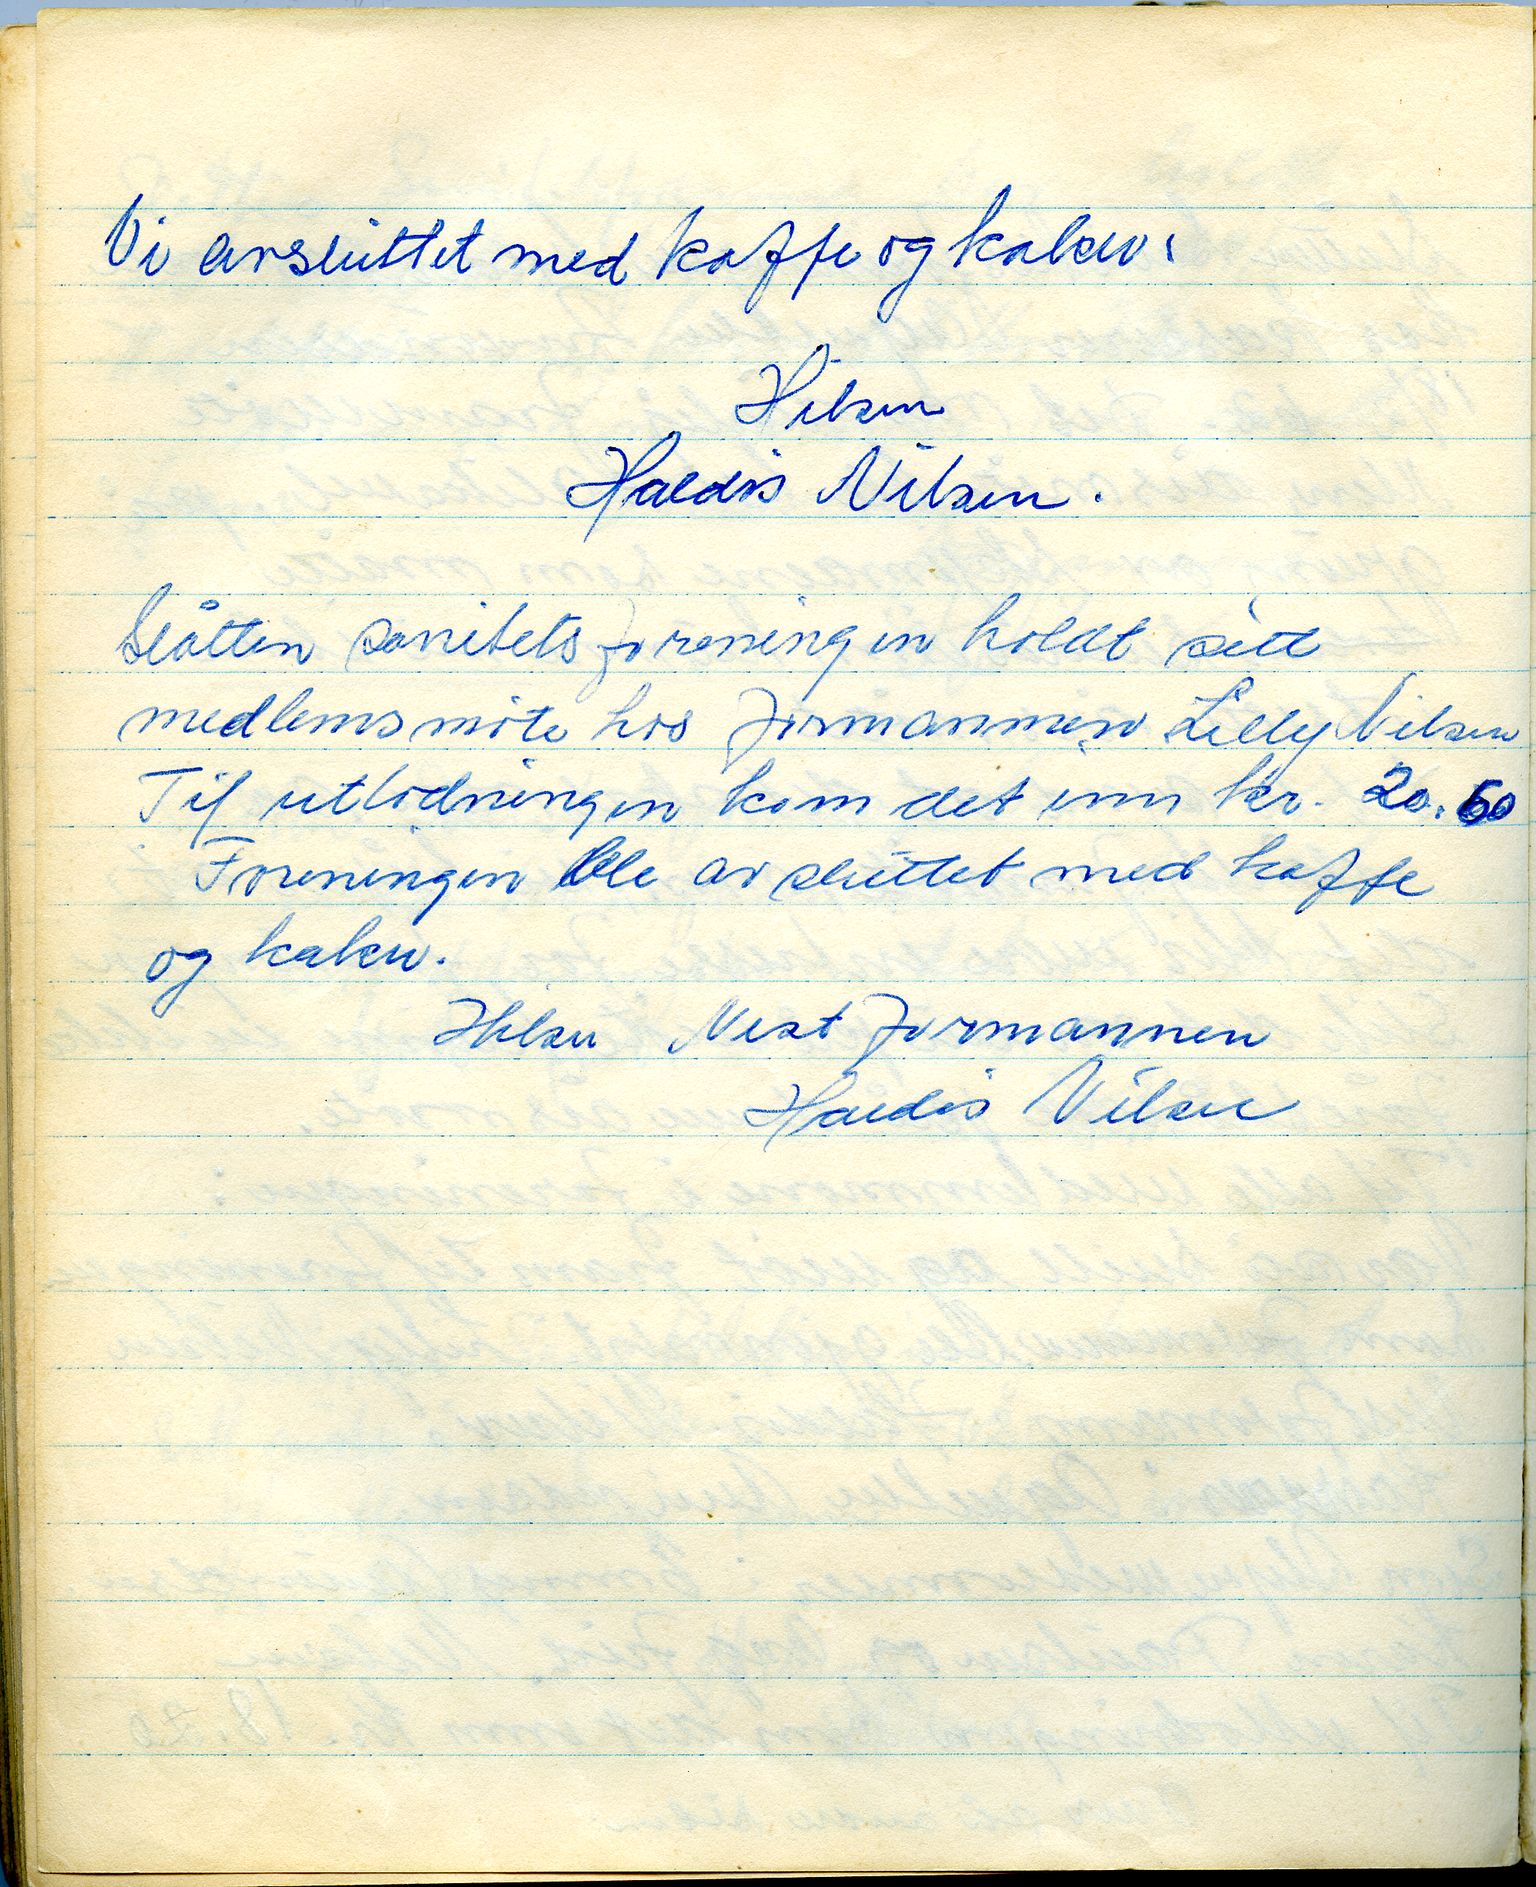 Vi avsluttet med kaffe og kaker.
Hilsen
Haldis Nilsen.
Slåtten sanitetsforeningen holdt sitt
medlemsmøte hos formannen Lilly Nilsen
Til utlodningen kom det inn kr. 20.60
Foreningen ble avsluttet med kaffe
og kaker.
Hilsen Nest formannen
Haldis Nilsen